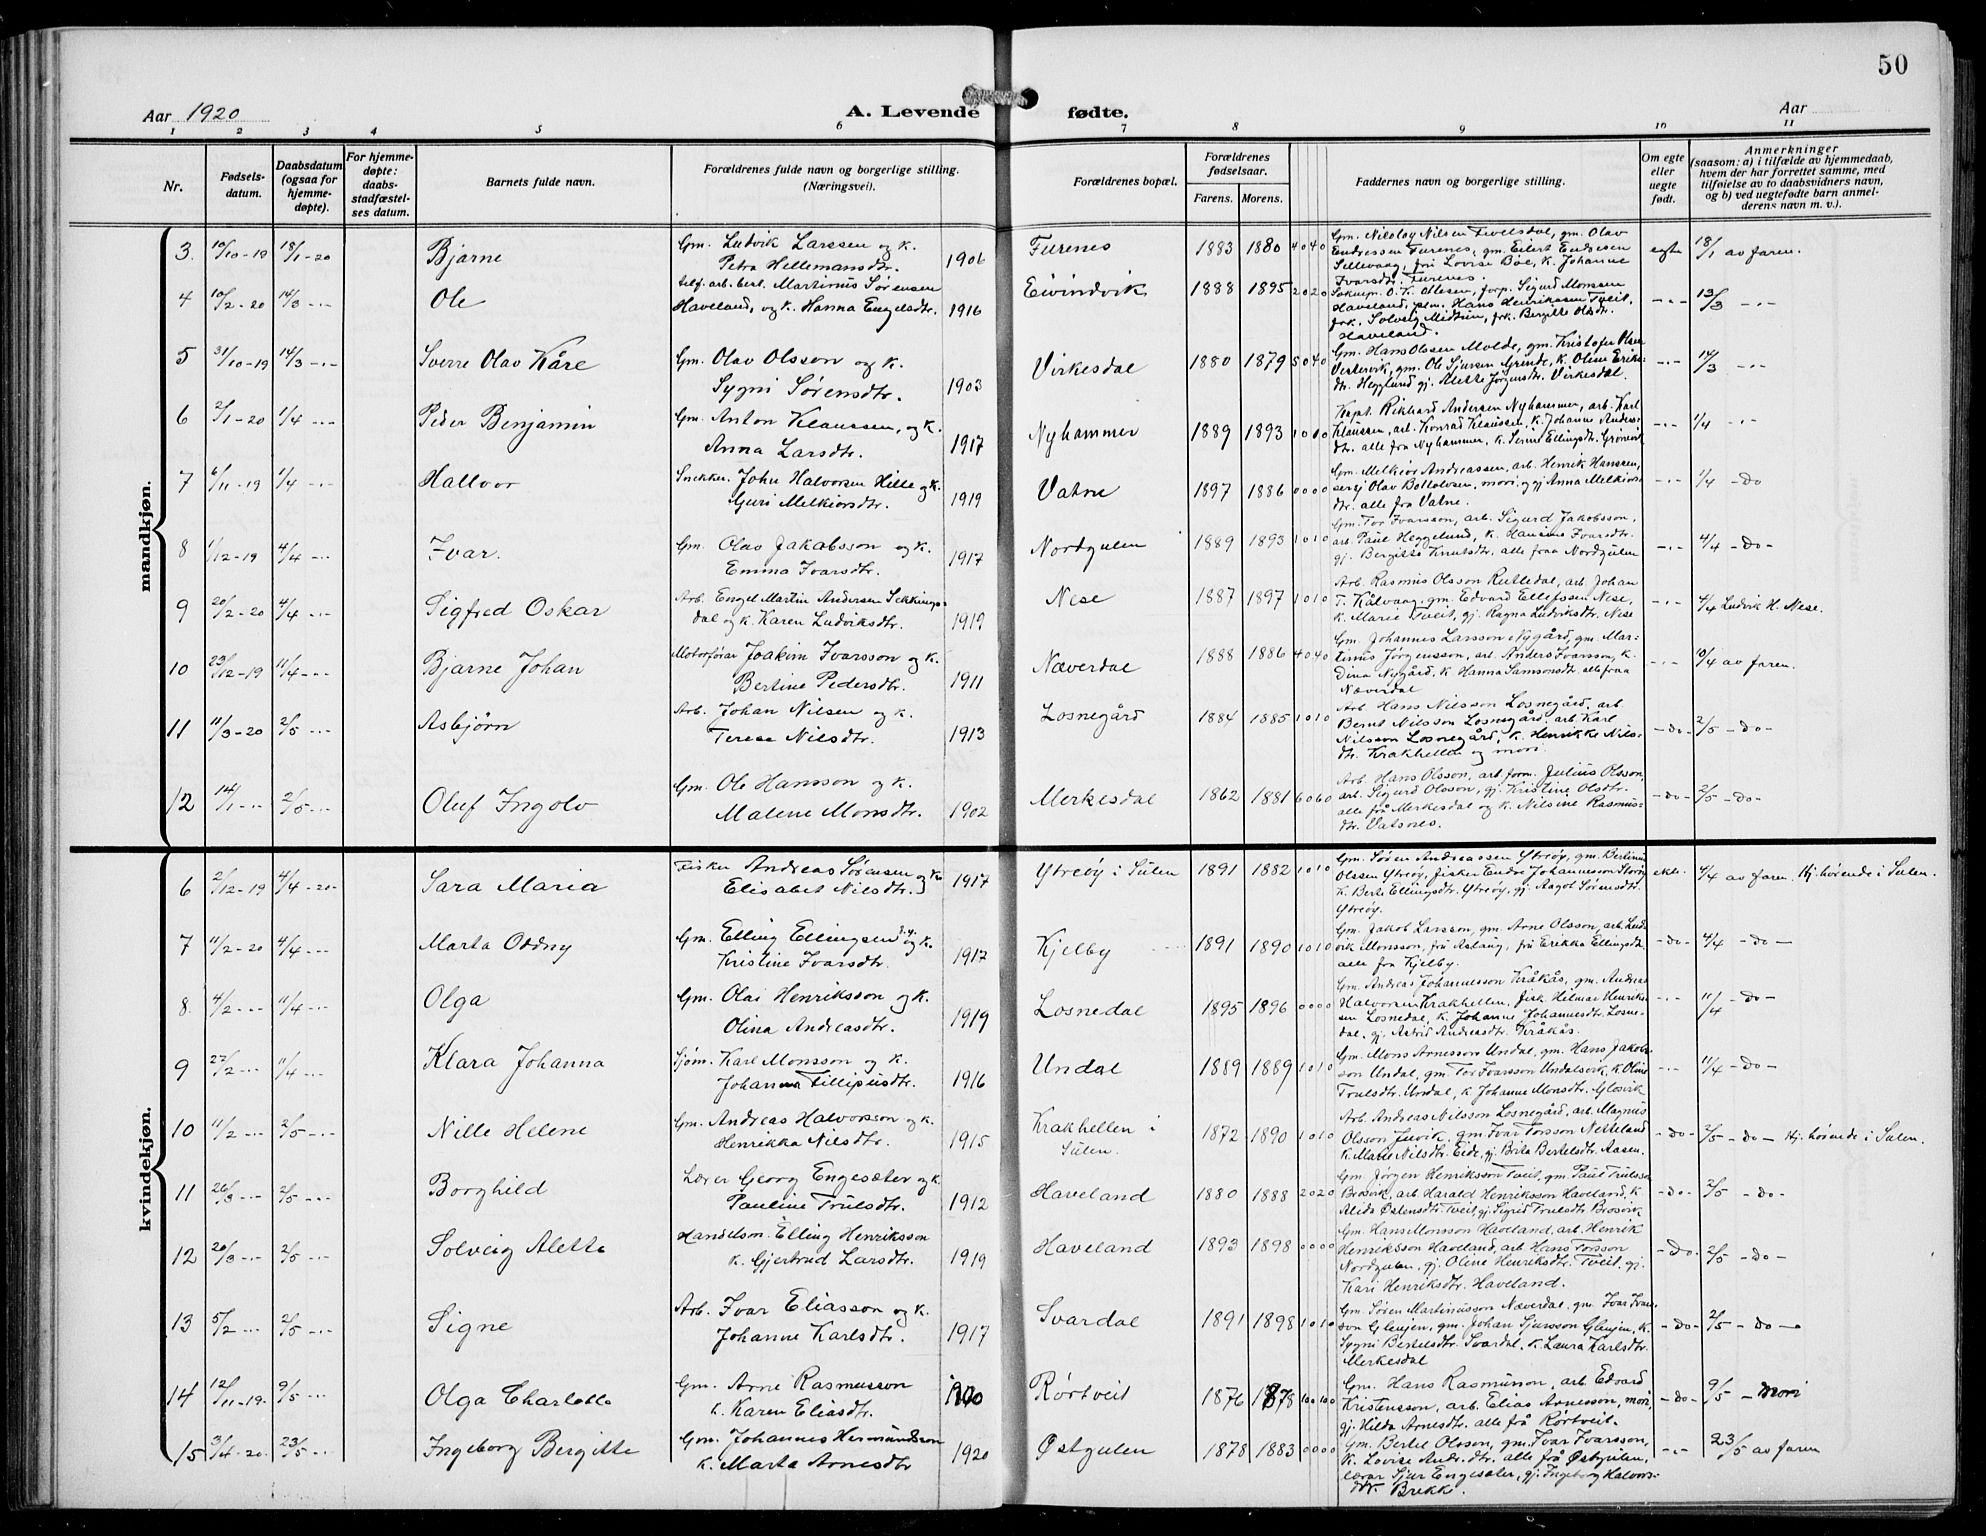 50
Aar 1920
A. Levende fødte.
Aar
1 2 3 4 5 6 7 8 9 10 11
Nr.
Fødsels-
datum.
Daabsdatum
(ogsaa for
hjemme-
døpte).
For hjemme-
døpte:
daabs-
stadfæstel-
ses datum.
Barnets fulde navn.
Forældrenes fulde navn og borgerlige stilling.
(Næringsvei).
Forældrenes bopæl.
Forældrenes
fødselsaar.
Farens. Morens.
Faddernes navn og borgerlige stilling.
Om egte
eller
uegte
født.
Anmerkninger
(saasom: a) i tilfælde av hjemmedaab,
hvem der har forrettet samme, med
tilføielse av to daabsvidners navn,
og b) ved uegtefødte barn anmel-
derens navn m. v.).
mandkjøn.
3. 10/10-19 18/1-20 Bjarne
Gm. Ludvik Larssen og k.
Petra Hellemansdtr. 1906
Furenes 1883 1880 4 0 4 0
Gm. Nikolay Nilsen Tveitsdal, gm. Olav
Endressen Furenes, gm. Eilert Endresen
Sellevaag, fru Lovise Bøe, k. Johanne
Ivarsdtr. Furenes.
egte 18/1 av faren.
4 10/2-20 14/3 -.- Ole
Self. arb. best. Martinus Sørensen
Haveland, og k. Hanna Engelsdtr. 1916
Eivindvik 1888 1895 2 0 2 0
Sakfrp. O. K. Ollesen, forp. Sigurd Monsen
Haveland, plm. Hans Henrikssen Tveit,
frk. Solveig Midtun, frk. Bergitte Olsdtr.
Haveland.
-.- 13/3 -.-
5 31/10-19 14/3 -.- Sverre Olav Kåre
Gm. Olav Olsson og k.
Sygni Sørensdtr. 1903
Virkesdal 1880 1879 5 0 4 0
Gm. Hans Olsen Molde, gm. Kristofer Olsen
Vestervik, gm. Ole Sjursen Grinde, k. Oline Eriks-
dtr. Hegglund gj. Alette Jørgensdtr. Virkesdal.
-.- 14/3 -.-
6 2/1-20 1/4 -.- Peder Benjamin
Gm. Anton Klaussen, og k.
Anna Larsdtr. 1917
Nyhammer 1889 1893 1 0 1 0
Kapt. Rikhard Andersen Nyhammer, arb. Karl
Klaussen, arb. Konrad Klaussen, k. Johanne Anders-
dtr. alle fra Nyhammer, k. Serine Ellingsdtr. Grønevik
-.- 1/4 -.-
7 6/11-19 1/4 -.- Hallvor
Snekker. John Halvorsen Hille og k.
Guri Melkiorsdtr. 1919
Vatne 1897 1886 0 0 0 0
Gm. Melkior Andreassen, arb. Henrik Hanssen,
sersj Olav Bottolvsen, mori, og gj Anna Melkiors-
dtr. alle fra Vatne.
-.- 1/4 -do
8 1/12-19 4/4 -.- Ivar.
Gm. Olav Jakobsson og k.
Emma Ivarsdtr. 1917
Nordgulen 1889 1893 1 0 1 0
Gm. Tor Ivarsson, arb. Sigurd Jakobsson,
arb. Paul Heggelund, k. Hansine Ivarsdtr.
gj. Bergitte Knutsdtr, alle fraa Nordgulen
-.- 4/4 -do-
9 20/2-20 4/4 -.- Sigfred Oskar
Arb. Engel Martin Andersen Sekkings-
dal og k. Karen Ludviksdtr. 1919
Nese 1887 1897 1 0 1 0
Arb. Rasmus Olsson Rutledal, arb. Johan
T. Kålvaag, gm. Edvard Ellefssen Nese,
k. Marie Tveit, gj. Ragna Ludviksdtr, Nese
-.- 4/4 Ludvik H. Nese.
10 23/12-19 11/4 -.- Bjarne Johan
Motorførar Joakim Ivarsson og k.
Bertine Pedersdtr. 1911
Næverdal 1888 1886 4 0 4 0
Gm. Johannes Larsson Nygård, gm. Mar-
tinus Jørgensson, arb. Anders Ivarsson, k.
Dina Nygård, k. Hanna Samsonsdtr. alle fraa
Næverdal
-.- 10/4 av faren.
11 11/3-20 2/5 -.- Asbjørn
Arb. Johan Nilsen og k.
Terese Nilsdtr. 1913
Losnegård 1884 1885 1 0 1 0
Arb. Hans Nilsson Losnegård, arb.
Bernt Nilsson Losnegård, arb Karl
Nilsson Losnegård, k. Henrikke Nils-
dtr. Krakhellen og mori.
-do- 2/5 -do-
12 14/1 -.- 2/5 -.- Oluf Ingolv
Gm. Ole Hansson og k.
Malene Monsdtr. 1902
Merkesdal 1862 1881 6 0 6 0
Arb. Hans Olsson, arb. form. Julius Olsson,
arb. Sigurd Olsson, gj. Kristine Olsdtr.
alle frå Merkesdal og k. Nilsine Rasmus-
dtr. Vatsnes.
-do- 2/5 -do-
kvindekjøn.
6 2/12-19 4/4-20- Sara Maria
Fisker Andreas Sørensen og k.
Elisabet Nilsdtr. 1917
Ytreøy i Sulen 1891 1882 1 0 1 0
Gm. Søren Andreassen Ytreøy, gm. Bertinius
Olssen Ytreøy, fisker Endre Johannesson Storøy
k. Berte Ellingsdtr. Ytreøy, gj. Aagot Sørensdtr.
Ytreøy.
ekte. 4/4 av faren. Hj. hørende i Sulen.
7 11/2-20 4/4 -.- Marta Oddny
Gm. Elling Ellingsen j.y. og k.
Kristine Ivarsdtr. 1917
Kjelby 1891 1890 1 0 1 0
Gm. Jakob Larsson, gm. Arne Olsson, arb. Lud-
vik Monsson, fru Astrup, fru Erikka Ellingsdtr.
alle fra Kjelby.
-do- 4/4 -do-
8. 4/2 -.- 11/4 -.- Olga
Gm. Olai Henriksson og k.
Olina Andreasdtr. 1919
Losnedal 1895 1896 0 0 0 0
Gm. Andreas Johannesson Kråkås, gm. Andreas
Halvorsen Krakhellen, fisk. Helmar Henriks-
sen Losnedal, k. Johanne Johannesdtr. Losne-
dal, gj. Astrid Andreasdtr. Kråkås.
-.- 11/4 -do-
9 27/2 -.- 11/4 -.- Klara Johanna
Sjøm. Karl Monsson og k.
Johanna Fillipusdtr. 1916
Undal 1889 1889 1 0 1 0
Gm. Mons Arnesson Undal, gm. Hans Jakobs-
son Undal, gm. Tor Ivarsson Undalsvik, k. Oline
Trulsdtr. Undal, k. Johanne Monsdtr. Glosvik
-.- 11/4 -do-
10 11/2 -.- 2/5 -.- Nille Helene
Gm. Andreas Halvorsson og k.
Henrikka Nilsdtr. 1915
Krakhellen i
Sulen. 1872 1890 1 0 1 0
Arb. Andreas Nilsson Losnegård, arb. Magnus
Olsson Juvik, gm. Ivar Torsson Netteland
k. Marie Nilsdtr. Eide, gj. Brita Bertelsdtr. Aasen.
-do- 2/5 -do- Hj. hørende i Sulen.
11 26/3 -.- 2/5 -.- Borghild
Lærer Georg Engesæter og k.
Pauline Trulsdtr. 1912
Haveland 1880 1888 2 0 2 0
Gm Jørgen Henriksson Tveit, gm. Paul Trulsson
Brosvik, arb. Harald Henriksson Haveland, k.
Alida Østensdtr. Tveit, gj. Sigrid Trulsdtr Brosvik
-do- 2/5 -do-
12 20/3 -.- 2/5 -.- Solveig Alette
Handelsm. Elling Henriksson
k. Gjertrud Larsdtr. 1919
Haveland 1893 1898 0 0 0 0
Gm. Hans Monsson Haveland, arb. Henrik
Henriksson Haveland, arb Hans Torsson
Nordgulen, gj. Oline Henriksdtr. Tveit, gj.
Kari Henriksdtr. Haveland.
-do. 2/5 -do-
13 5/2 -.- 2/5 -.- Signe
Arb. Ivar Eliasson og k.
Johanne Karlsdtr. 1917
Svardal 1891 1898 1 0 1 0
Gm. Søren Martinusson Næverdal, gm. Ivar Ivars-
son Glenjen, gm. Johan Sjursson Glenjen, k.
Sygni Bertelsdtr. Svardal, k. Laura Karlsdtr.
Merkesdal
-do- 2/5 -do-
14 12/11-19. 9/5 -.- Olga Charlotte
Gm. Arne Rasmusson
k. Karen Eliasdtr. 1900
Rørtveit 1876 1878 10 0 10 0
Gm. Hans Rasmusson, arb Edvard
Kristensson, arb. Elias Arnesson, mori,
gj. Hilda Arnesdtr. alle frå Rørtveit.
-do- 9/5 - mori
15 3/4-20. 23/5 -.- Ingeborg Bergitte
Gm. Johannes Hermundson
k. Marta Arnesdtr 1920
Østgulen 1878 1883 0 0 0 0
Gm. Bertel Olsson, gm. Ivar Ivarsson,
k. Lovise Andr. dtr. alle frå Østgulen,
lærar Sjur Engesæter, gj. Ingeborg Halvors-
dtr. Brekke.
-.- 23/5 av faren